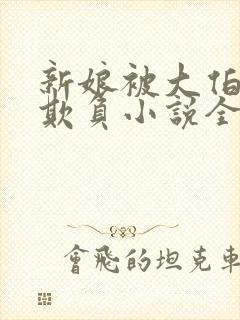 新娘被大伯
欺負小說全
會飛的坦克車